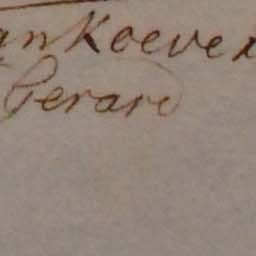 an Koeve
Gerard